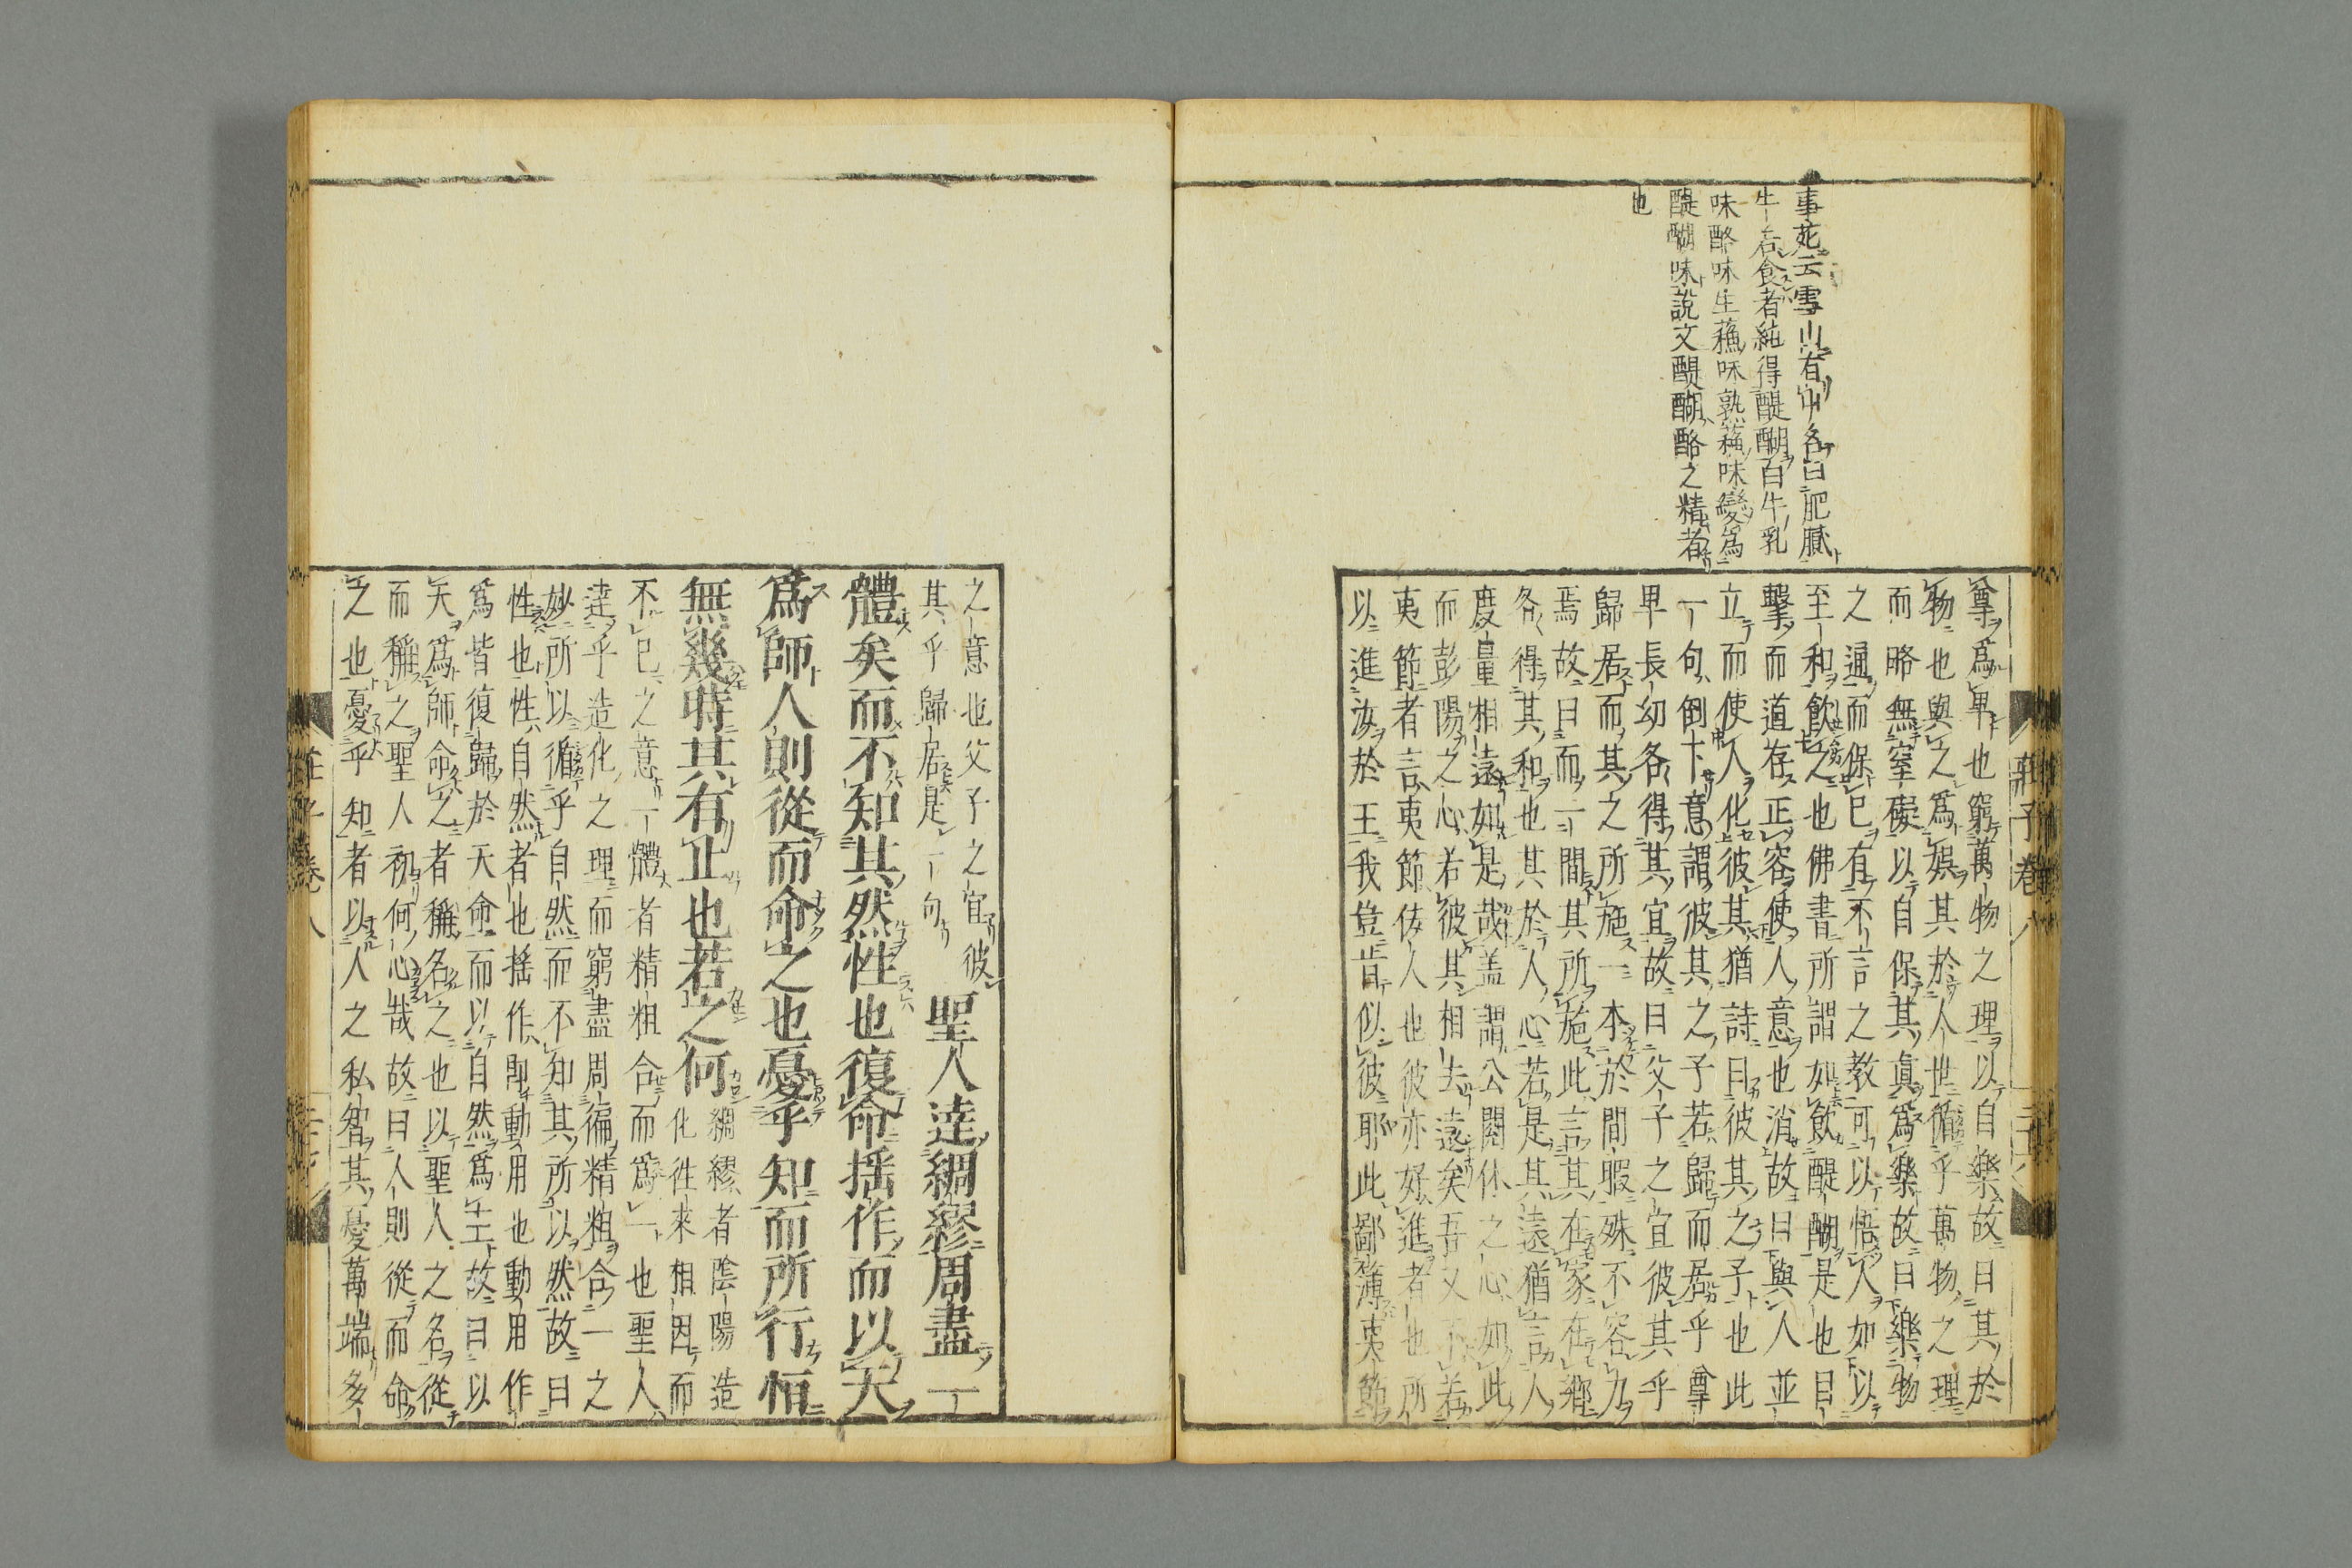 事苑云雪山有屮名曰肥膩
牛若食者純得醍醐白牛乳
味酪味生蘓味熟蘓味變爲
醍醐味說文醍醐酪之精者
也
莊子卷八
尊爲卑也窮萬物之理以自樂故曰其於
物也與之爲娛其於人世循乎萬物之理
而略無窒礙以自保其眞爲樂故曰樂物
之通而保已有不言之教可以悟人如以
至和飲之也佛書所謂如飲醍醐是也目
擊而道存正容使人意也消故曰與人並
立而使人化彼其猶詩曰彼其之子也此
一句倒下意謂彼其之子若歸而居乎尊
卑長幼各得其宜故曰父子之宜彼其乎
歸居而其之所施一本於間暇殊不容力
焉故曰而一間其所施此言其在家在鄉
各得其和也其於人心若是其遠猶言人
度量相遠如是哉盖謂公閱休之心如此
而彭陽之心若彼其相去遠矣吾又不若
夷節者言夷節佞人也彼亦好進者也所
以進汝於王我豈肯似彼耶此鄙薄夷節
之意也父子之宜彼
其乎歸居是一句
聖人達綢繆周盡一
體矣而不知其然性也復命揺作而以天
爲師人則從而命之也憂乎知而所行恒
無幾時其有止也若之何
綢繆者陰陽造
化徃來相因而
不已之意一體者精粗合而爲一也聖人
達乎造化之理而窮盡周徧精粗合一之
妙所以循乎自然而不知其所以然故曰
性也性自然者也揺作即動用也動用作
爲皆復歸於天命而以自然爲主故曰以
天爲師命之者稱名之也以聖人之名從
而稱之聖人初何心哉故曰人則從而命
之也憂乎知者以人之私智其憂萬端多